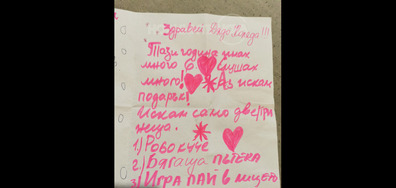 Здравей Дядо Коледа!!!
Тази година
много слушах
много! Аз искам
подарък!
Искам само две/три
неща.
1.) РОБОКУЧЕ
2.) Бягаща ПЪТЕКА
3) ИГРА ПАЙ В